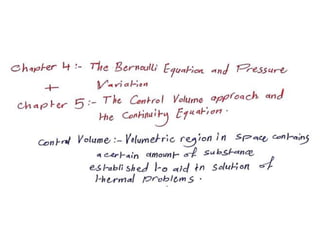 Chapter 4:- The Bernoulli Equation and Pressure
+ Variation
Chapter 5:- The Control Volume approach and
the Continuity Equation.
Control Volume:- Volumetric region in space contains
a certain amount of substance
established to aid in solution of
thermal problems.